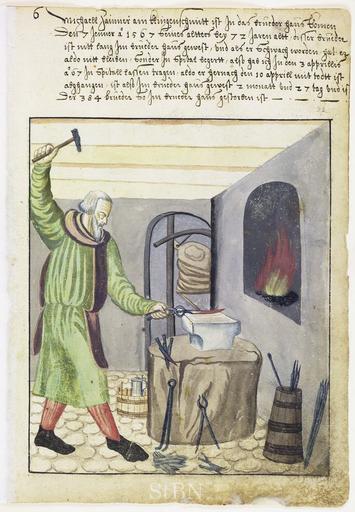 6
Michaell Zaüner am klingenschmit ist Jn das brüeder haüs komen
Den 7 Jenner a 1567 seines alters bey 72 Jaren alt disser brüeder
ist nit lang Jm brüeder haüs gewest und als er schwach worden hat er
aldo nit bleiben sonder Jn Spital begert also hab ich Jn den 3 appriello
a 67 Jn Spitall lassen tragen aldo er hernach den 10 apprill mit todt ist
abgangen ist also Jm brüeder haüs gewest 2 monatt und 27 tag und ist
Der 384 brüeder so Jm brüeder haüs gestorben ist
StBN